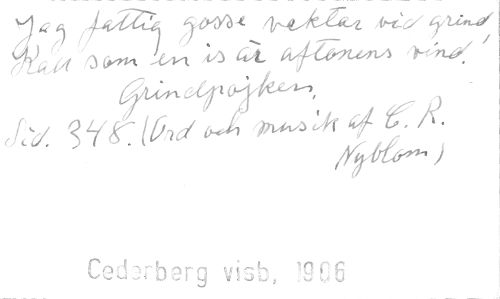 Jag fattig gosse vaktar vid grind,
Kall som en is är aftonens vind!
Grindpojken.
Sid. 348. (Ord och musik af C. R.
Nyblom)
Cederberg visb, 1906